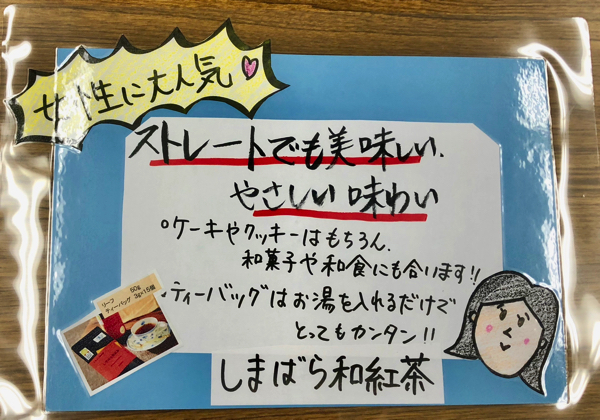 女性に大人気
ストレートでも美味しい、
やさしい味わい
ケーキやクッキーはもちろん、
和菓子や和食にも合います!!
ティーバッグはお湯を入れるだけで
とってもカンタン!!
しまばら和紅茶
リーフ 50g
ティーバッグ 3g×15個